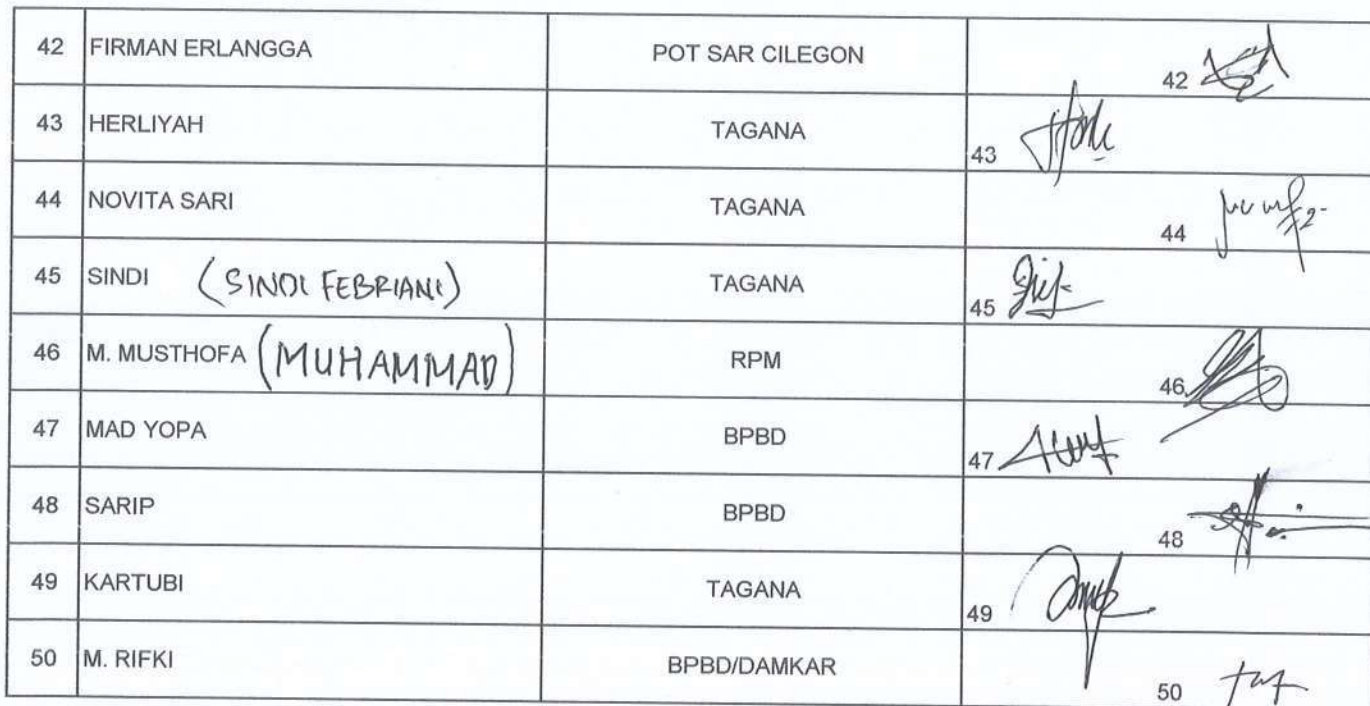 42 FIRMAN ERLANGGA POT SAR CILEGON 42
43 HERLIYAH TAGANA 43
44 NOVITA SARI TAGANA 44
45 SINDI (SINDI FEBRIANI) TAGANA 45
46 M. MUSTHOFA (MUHAMMAD) RPM 46
47 MAD YOPA BPBD 47
48 SARIP BPBD 48
49 KARTUBI TAGANA 49
50 M. RIFKI BPBD/DAMKAR 50